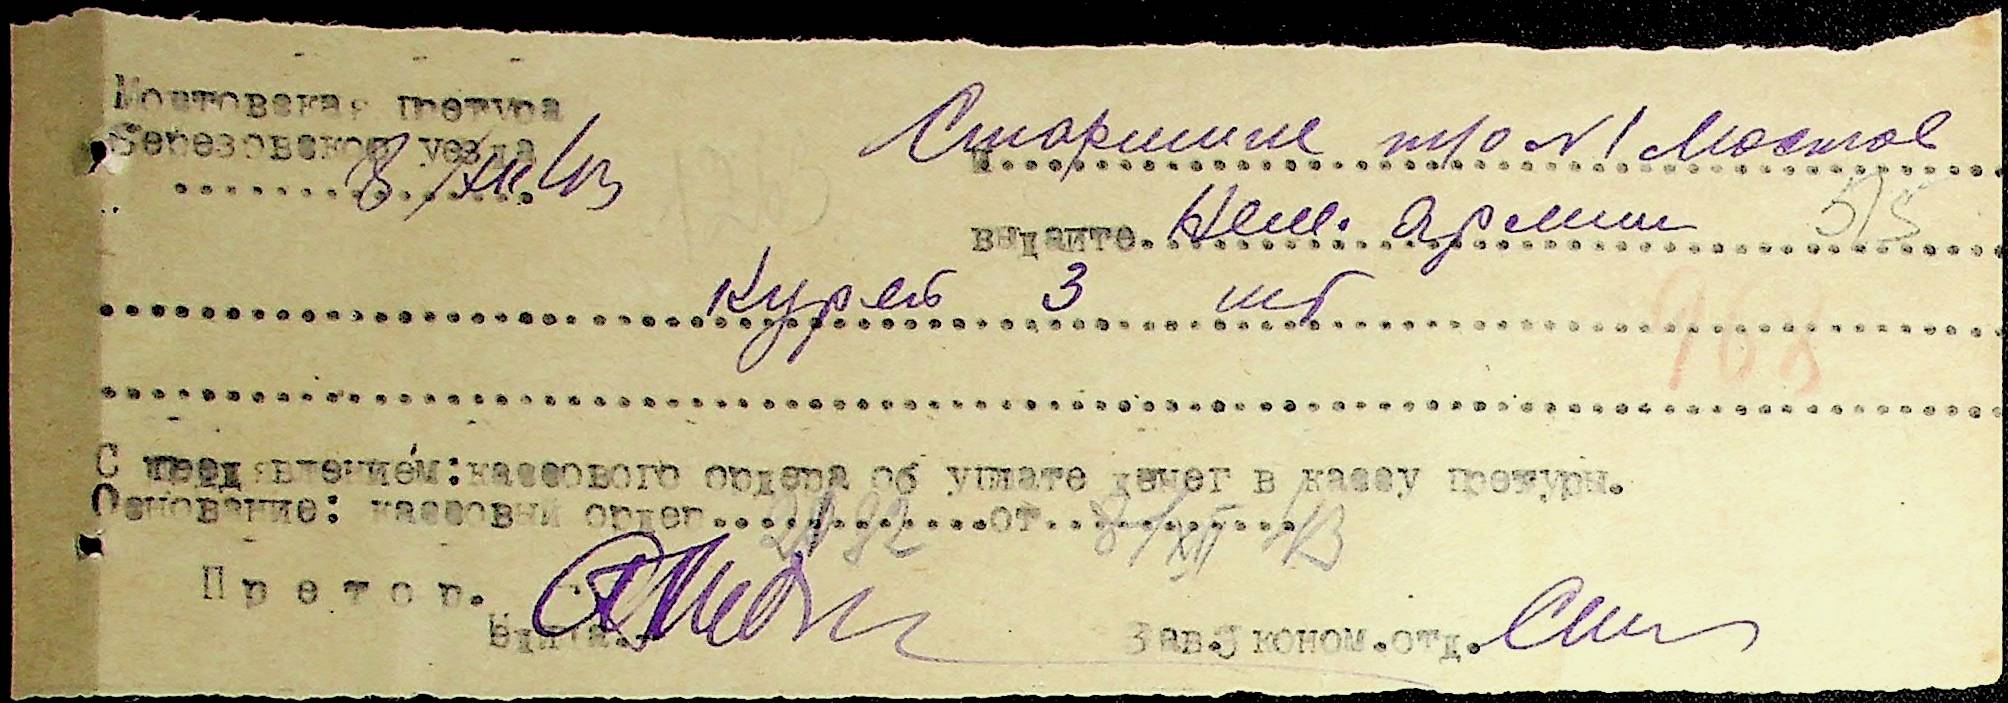 Мостовская претура
Березовского уезда
8/XII 43
Старшине т/о N 1 Мостов
выдайте. Нем. армии 515
Курей 3 шт
968
С пред'явлением: кассового ордера об уплате денег в кассу претуры.
Основание: кассовый ордер....2892....от....8/XII 43
Претор.
Зав.Эконом.отд.